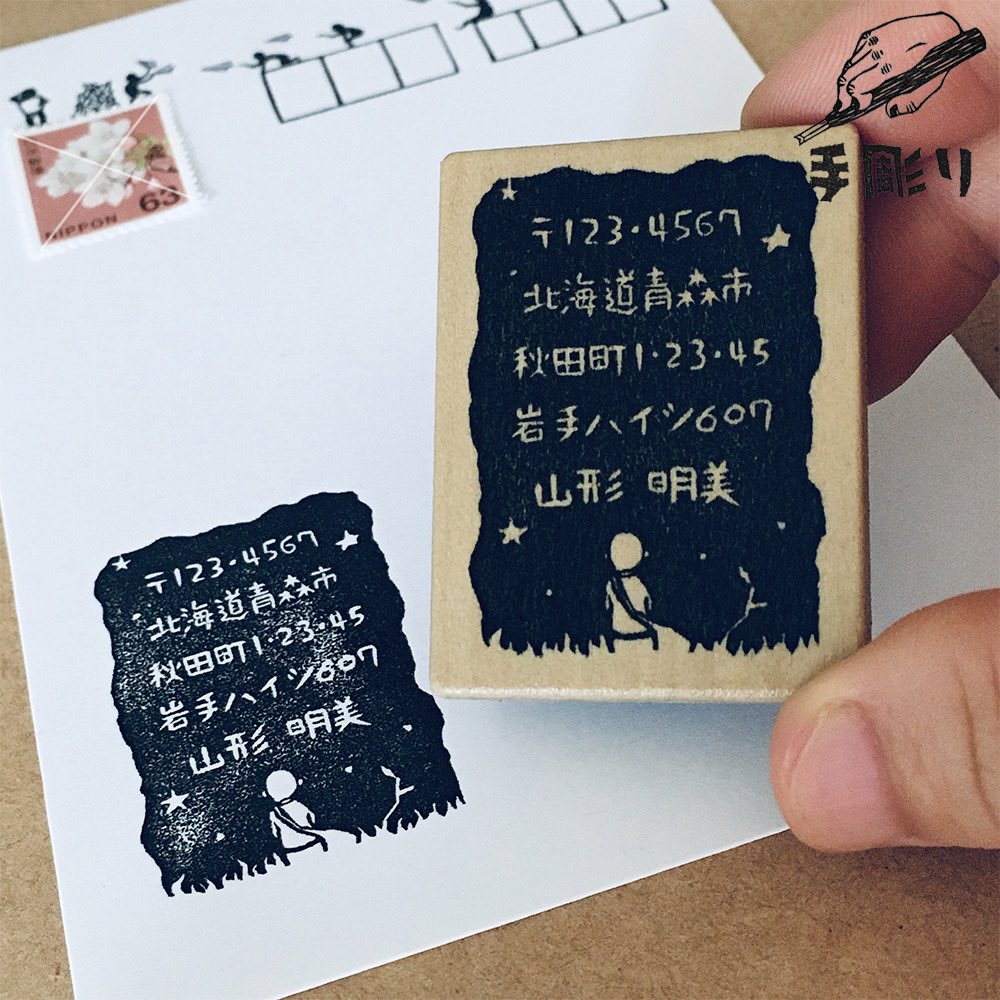 手彫り
NIPPON
63
〒123・4567
北海道青森市
秋田町1・23・45
岩手ハイツ607
山形 明美
〒123・4567
北海道青森市
秋田町1・23・45
岩手ハイツ607
山形 明美